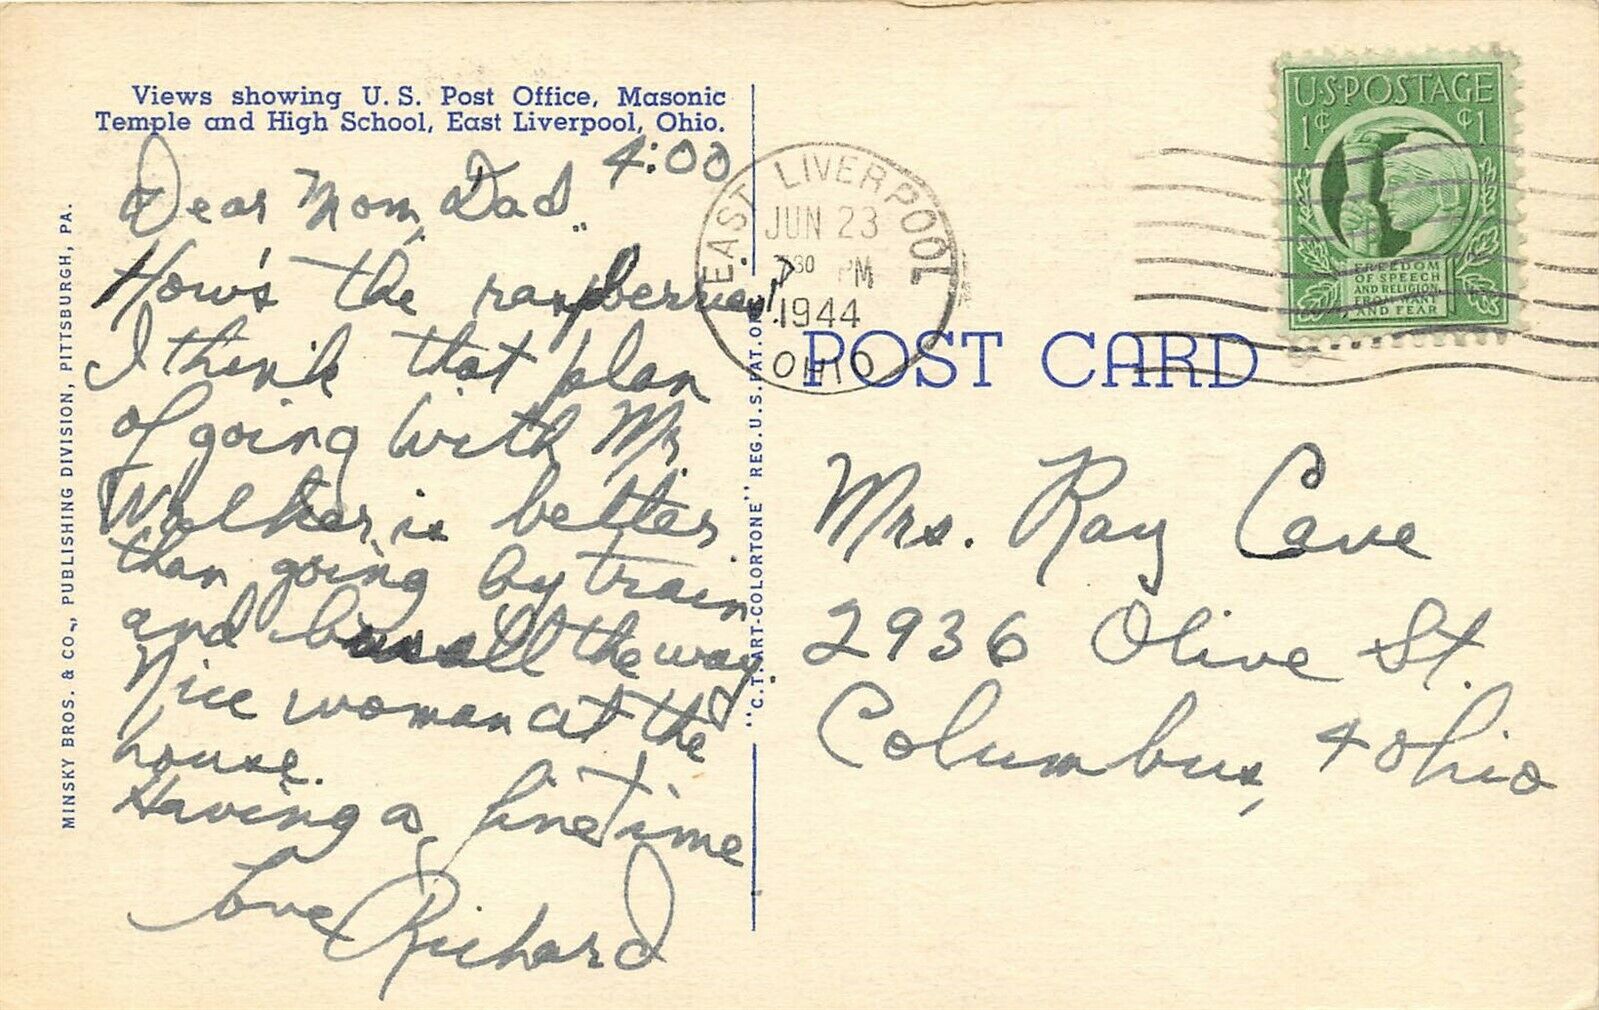 Views showing U. S. Post Office, Masonic
Temple and High School, East Liverpool, Ohio.
4:00
Dear Mom, Dad,
How's the raspberries?
I think that plan
of going with Mr.
Walker is better
than going by train
and bus all the way.
Nice woman at the
house.
Having a fine time
Love
Richard
MINSKY BROS. & CO., PUBLISHING DIVISION, PITTSBURGH, PA.
"C.T. ART-COLORTONE" REG. U.S. PAT. OFF.
EAST LIVERPOOL
JUN 23
30 PM
1944
OHIO
U·S·POSTAGE
1¢ ¢1
FREEDOM
OF SPEECH
AND RELIGION,
FROM WANT
AND FEAR
POST CARD
Mrs. Ray Cave
2936 Olive St.
Columbus, 4 Ohio